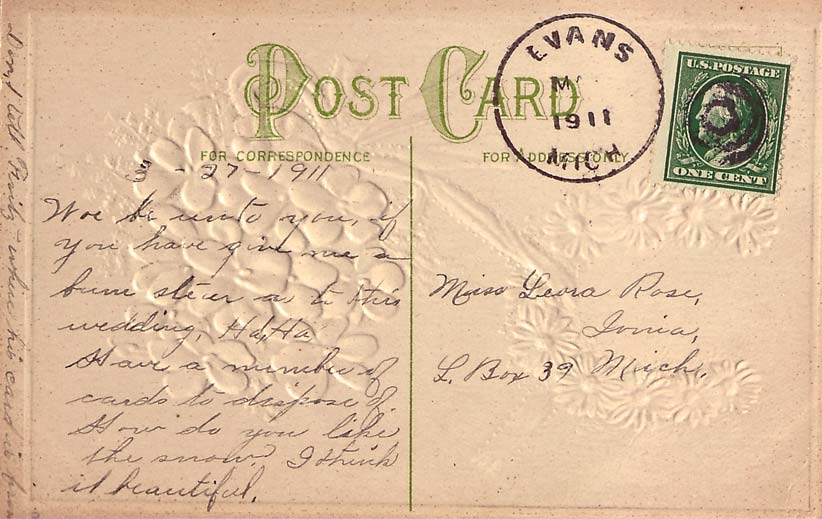 POST CARD
FOR CORRESPONDENCE
FOR ADDRESS ONLY
EVANS
1911
MICH
U.S. POSTAGE
ONE CENT
-27-1911
Woe be unto you, if
you have give me a
bum steer as to this
wedding, Ha, Ha
Have a number of
cards to dispose of
How do you like
the snow? I think
it beautiful.
Miss Leora Rose,
Ionia,
L. Box 39 Mich.
Don't tell where his card is from